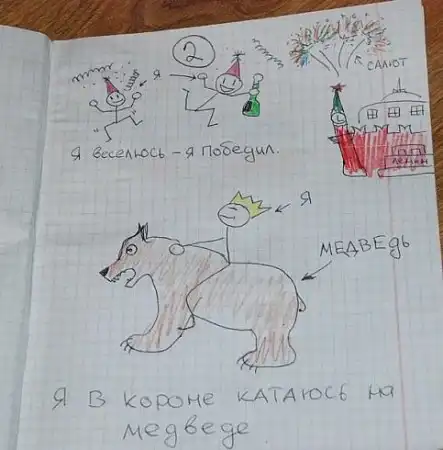 2
я
САЛЮТ
ЛЕНИН
Я веселюсь – я победил.
Я
МЕДВЕДЬ
Я В короне КАТАЮСЬ на
медведе